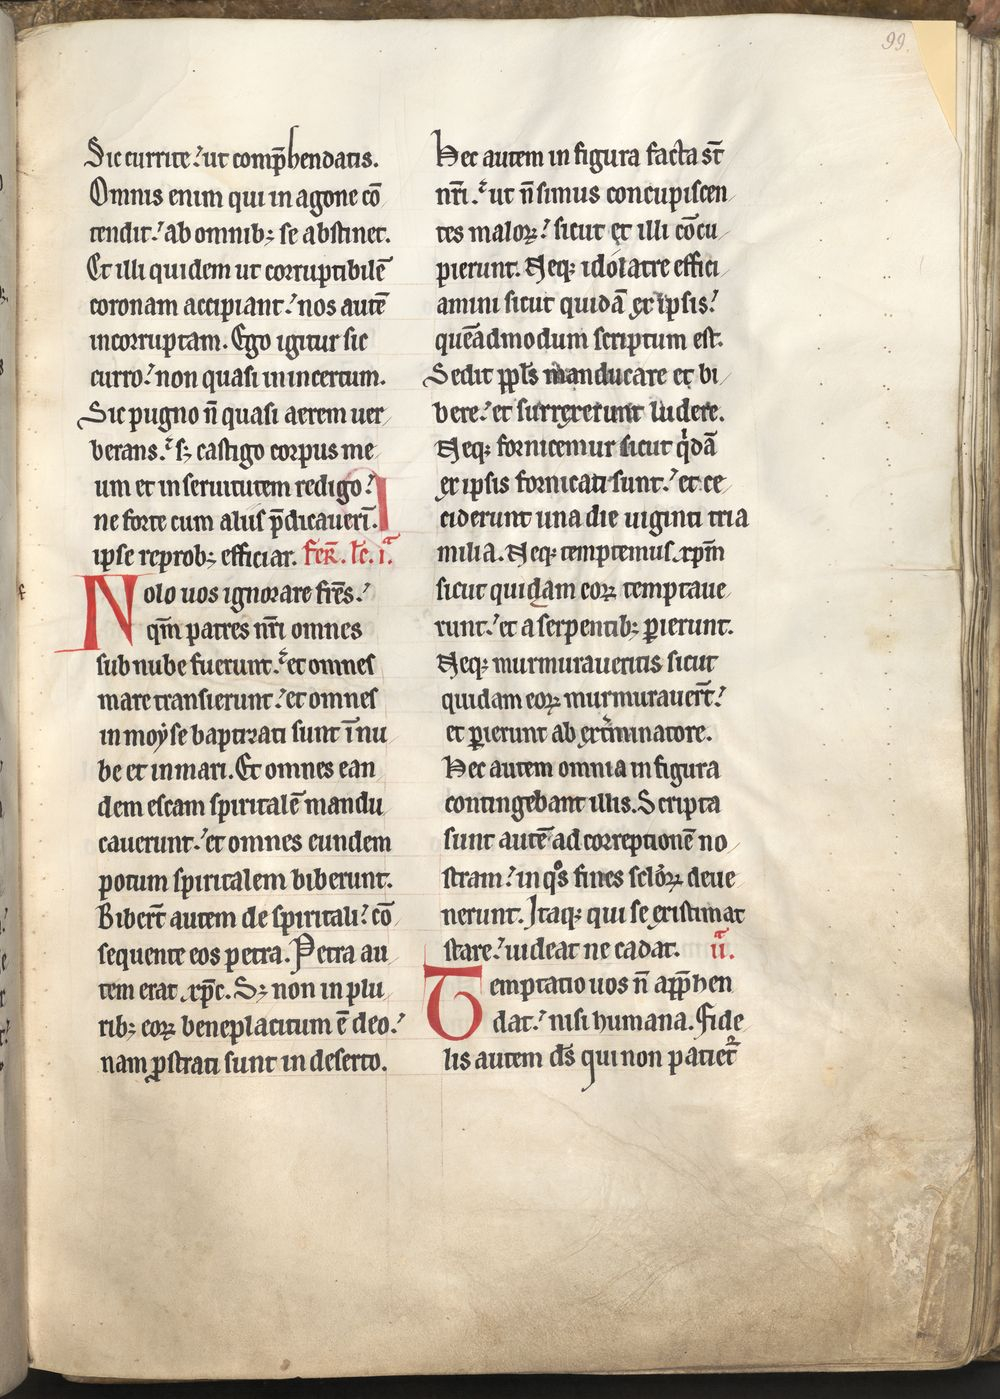 99.
Sic currite? ut comp̄hendatis.
Omnis enim qui in agone cō
tendit? ab omnibꝫ se abstinet.
Et illi quidem ut corruptibilē
coronam accipiant? nos autē
incorruptam. Ego igitur sic
curro? non quasi in incertum.
Sic pugno n̄ quasi aerem uer
berans. sꝫ castigo corpus me
um et in seruitutem redigo?
ne forte cum aliis p̄dicauerī.
ipse reprobꝫ efficiar. fer̄. lc̄. i.ᵃ
Nolo uos ignorare fr̄es?
qm̄ patres nr̄i omnes
sub nube fuerunt. et omnes
mare transierunt? et omnes
in moẏse baptizati sunt ī nu
be et in mari. Et omnes ean
dem escam spiritalē mandu
cauerunt? et omnes eundem
potum spiritalem biberunt.
Biber̄t autem de spiritali? cō
sequente eos petra. Petra au
tem erat xp̄c. Sꝫ non in plu
ribꝫ eoꝝ beneplacitum ē deo?
nam ꝓstrati sunt in deserto.
Hec autem in figura facta st̄
nr̄i. ut n̄ simus concupiscen
tes maloꝝ? sicut et illi cōcu
pierunt. Neqꝫ idolatre effici
amini sicut quidā ex ipsis?
quēadmodum scriptum est.
Sedit ppl̄s manducare et bi
bere? et surrexerunt ludere.
Neqꝫ fornicemur sicut qͥdā
ex ipsis fornicati sunt? et ce
ciderunt una die uiginti tria
milia. Neqꝫ temptemus xpm̄
sicut quidam eoꝝ temptaue
runt? et a serpentibꝫ ꝑierunt.
Neqꝫ murmuraueritis sicut
quidam eoꝝ murmurauer̄t?
et ꝑierunt ab exterminatore.
Hec autem omnia in figura
contingebant illis. Scripta
sunt autē ad correptionē no
stram? in qͦs fines scl̄oꝝ deue
nerunt. Itaqꝫ qui se existimat
stare? uideat ne cadat. ii.ᵃ
Temptatio uos n̄ app̄hen
dat? nisi humana. Fide
lis autem ds̄ qui non patiet᷑